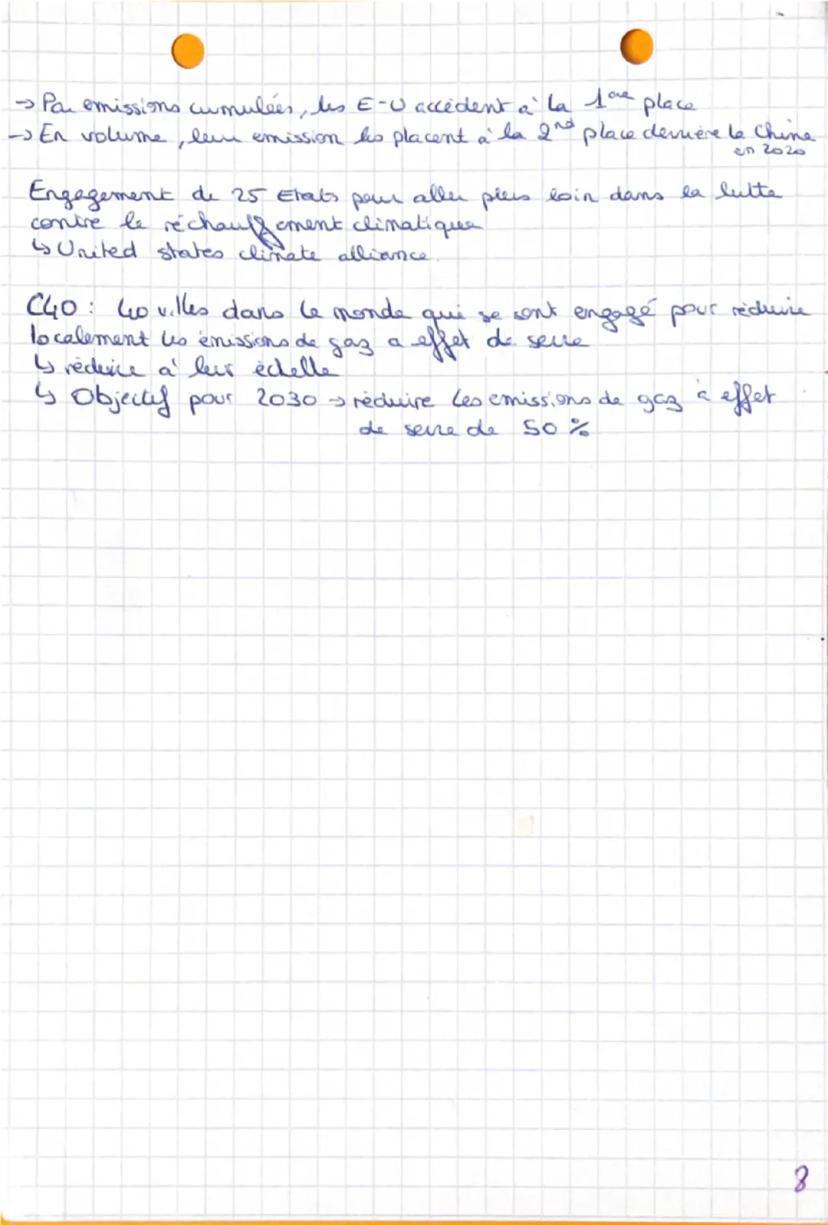 → Par emissions cumulées, les E-U accèdent à la 1ère place
→ En volume, leur emission les placent à la 2nd place derrière la Chine
en 2020
Engagement de 25 Etats pour aller plus loin dans la lutte
contre le réchauffement climatique
↳ United states climate alliance.
C40 : 40 villes dans le monde qui se sont engagé pour réduire
localement les émissions de gaz a effet de serre
↳ réduire à leur échelle
↳ Objectif pour 2030 → réduire les emissions de gaz à effet
de serre de 50 %
8